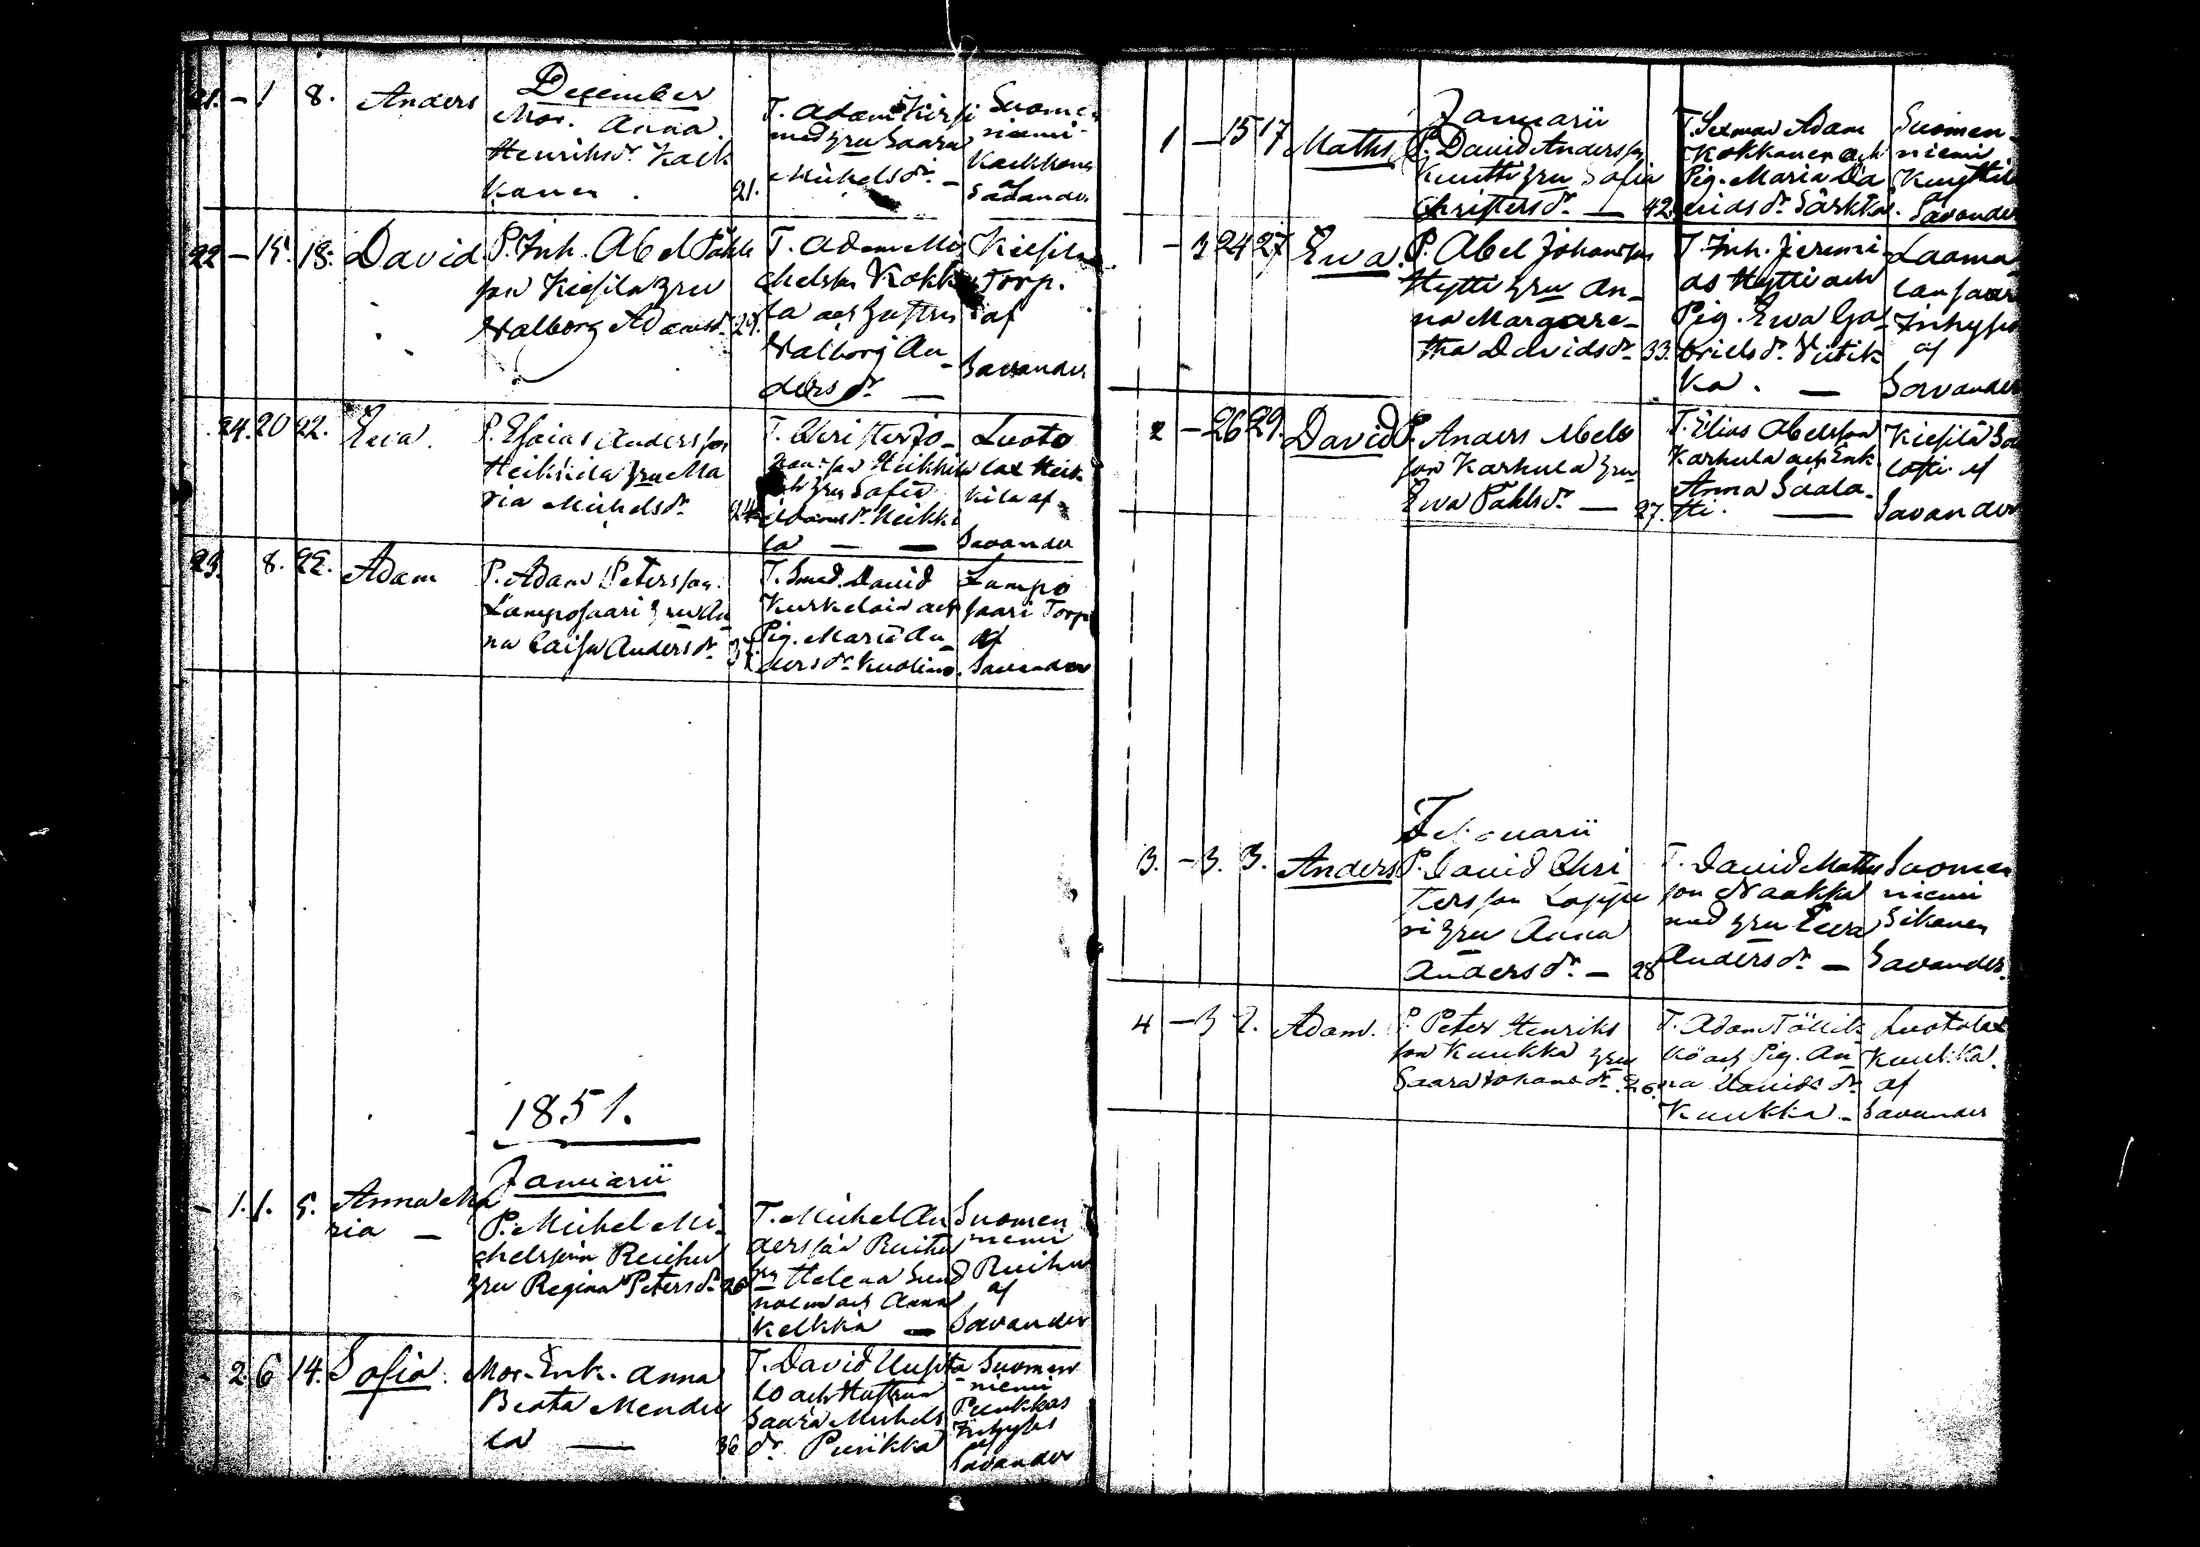 December
21. – 1 8. Anders
Mor. Anna
Henriksdr. Kack
kanen. 21.
T. Adam Kirsi
med hru Saara
Michelsdr. –
Suomen
niemi
Kackkone
af
Savander
22 – 15. 18. David
P. Inh. Abel Påhls
son Kiesilä hru
Walborg Adamsdr. 29.
T. Adam Mi
chelsson Kokk
la och hustru
Walborg An
dersdr. –
Kiesilä
Torp.
af
Savander
24. 20 22. Ewa.
P. Esaias Andersson
Heikkilä hru Ma
ria Michelsdr. 24.
T. Christer Jo-
hansson Heikkilä
och hru Sofia
Adamsdr. Heikki
la – –
Luoto
lax Heik
kilä af
Savander
23. 8. 22. Adam
P. Adam Petersson
Lamposaari hru An
na Caisa Andersdr.
T. Smed. David
Kurkelain och
Pig. Maria An
dersdr. Kuolimo.
Lampo
saari Torp
af
Savander
1851.
Januarii
– 1. 1. 5. Anna Ma
ria –
P. Michel Mi
chelsson Reuhu
hru Regina Petersdr. 26
T. Michel An
dersson Ruihu
hru Helena Sund
holm och Anna
Kelkka –
Suomen
niemi
Ruihu
af
Savander
2. 6 14. Sofia.
Mor. Enk. Anna
Beata Mende
la – 36
T. David Uusita
lo och Hustrun
Saara Michels
dr. Purikka
Suomen
niemi
Punkkas
Inhyses
af
Savander
Januarii
1 – 15 17 Maths
P. David Andersson
Knutti hru Sofia
Christersdr. – 42.
T. Sexman Adam
Kokkonen och
Pig. Maria Da
vidsdr. Särkkä.
Suomen-
niemi
Knuttila
af
Savander
– 3 24 27 Ewa.
P. Abel Johansson
Hytti hru An-
na Margare-
tha Davidsdr. 33.
T. Inh. Jeremi-
as Hytti och
Pig. Ewa Ga-
brielsdr. Viitik
ka. –
Laama
lansaari
Inhyses
af
Savander
2 – 26 29. David
P. Anders Abels
son Karhula hru
Ewa Påhlsdr. – 27.
T. Elias Abelsson
Karhula och Enk.
Anna Saala-
tti. –
Kiesilä Sa
latti af
Savander
Februarii
3. – 3. 3. Anders
P. David Chri
stersson Lappa
ri hru Anna
Andersdr. – 28
T. David Matts
son Naakka
med hru Eeva
Andersdr. –
Suomen
niemi
Sikanen
Savander.
4 – 3 2. Adam.
P. Peter Henriks
son Kuukka hru
Saara Johansdr. 26.
T. Adam Töllik
kö och Pig. An
na Davidsdr.
Kuukka –
Luotolax
Kuukka.
af
Savander